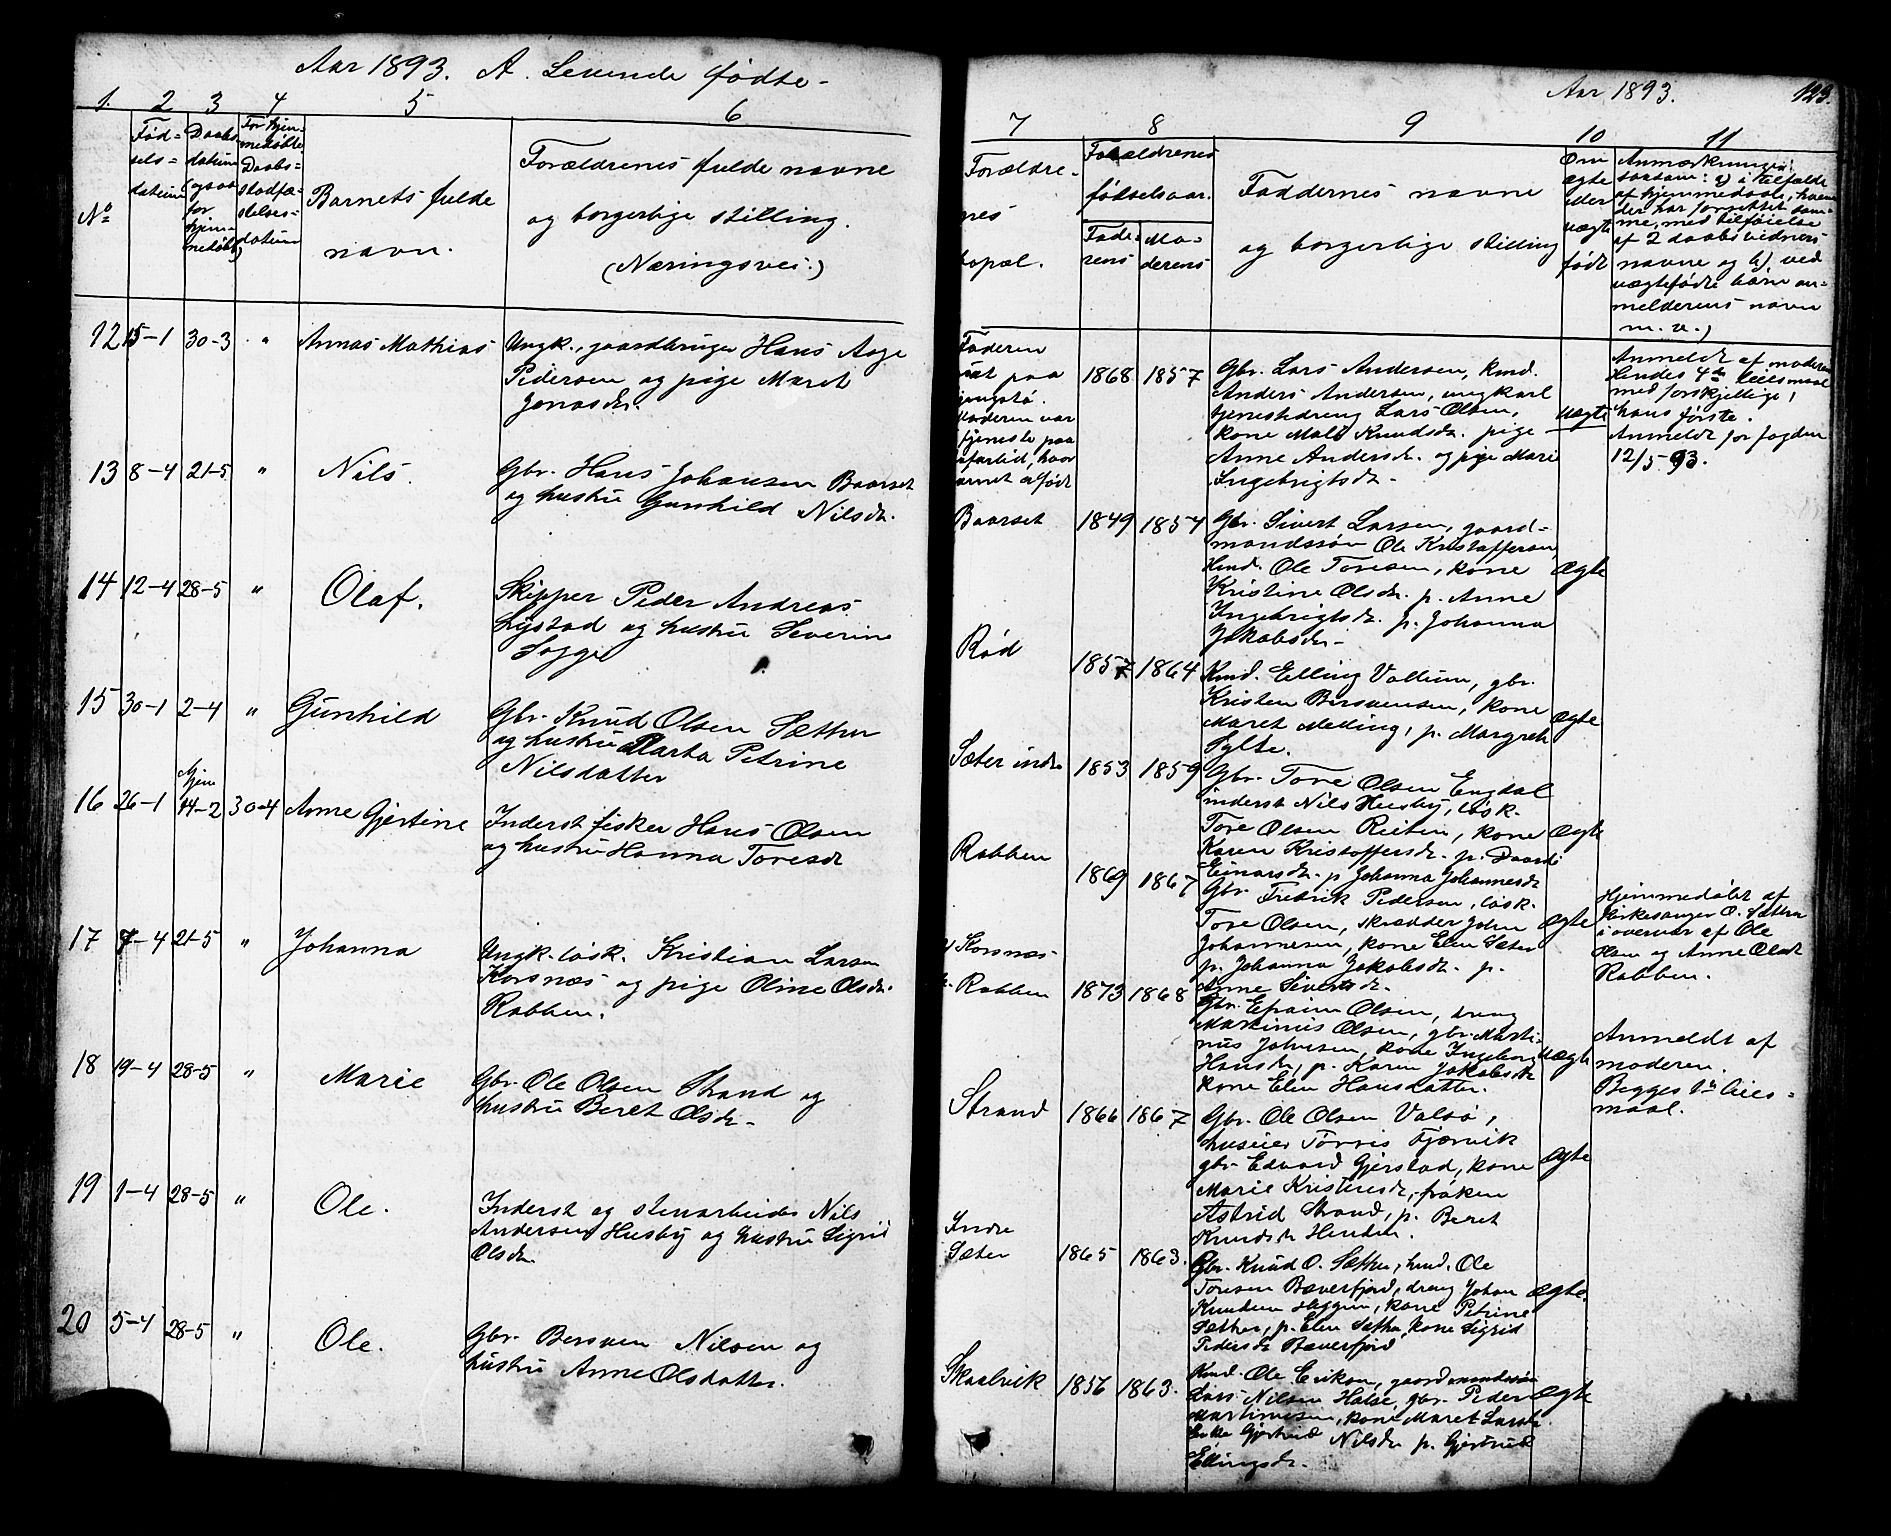 Aar 1893. A. Levende fødte.
1. 2 3 4 5 6
No
Fød-
sels-
datum
Daabs-
datum
(ogsaa
for
hjem-
medøbte)
For hjem-
medøbte
Daabs-
stadfæ-
stelses-
datum
Barnets fulde
navn.
Forældrenes fulde navne
og borgerlige stilling.
(Næringsvei.)
12 15-1 30-3 " Annas Mathias Ungk., gaardbruger Hans Aage
Pedersen og pige Maret
Jonasdr.
13 8-4 21-5 " Nils. Gbr. Hans Johansen Baarset
og hustru Gunhild Nilsdr.
14 12-4 28-5 " Olaf. Skipper Peder Andreas
Lystad og hustru Severine
Sogge
15 30-1 2-4 " Gunhild Gbr. Knud Olsen Sæther
og hustru Marta Petrine
Nilsdatter
Hjem
16 26-1 14-2 30-4 Anne Gjertine Inderst fisker Hans Olsen
og hustru Hanna Toresdr
17 7-4 21-5 " Johanna Ungk. løsk. Kristian Larsen
Korsnæs og pige Oline Olsdr.
Rabben.
18 19-4 28-5 " Marie Gbr. Ole Olsen Strand og
hustru Beret Olsdr.
19 1-4 28-5 " Ole. Inderst og stenarbeider Nils
Andersen Husby og hustru Sigrid
Olsdr.
20 5-4 28-5 " Ole. Gbr. Bersven Nilsen og
hustru Anne Olsdatter.
Aar 1893. 123.
7 8 9 10 11
Forældre-
nes
bopæl.
Forældrenes
fødselsaar.
Fade-
rens
Mo-
derens
Faddernes navne
og borgerlige stilling
Om
ægte
eller
uægte
født
Anmærkninger.
saasom: a) i tilfælde
af hjemmedaab, hvem
der har forrettet sam-
me, med tilføielse
af 2 daabsvidners
navne og b) ved
uægtefødte børn an-
melderens navn
m. v.)
Faderen
paa
Moderen var
tjeneste paa
hvor
barnet er født
1868 1857
Gbr. Lars Andersen, kmd.
Anders Andersen, ungkarl
tjenestedreng Lars Olsen,
kone Mali Knudsdr. pige
Anne Andersdr. og pige Marie
Ingebrigtsdr.
uægte
Anmeldt af moderen
Hendes 4de leiermaal
med forskjellige,
hans første.
Anmeldt for fogden
12/5-93.
Baarset 1849 1854 Gbr. Sivert Larsen, gaard-
mandssøn Ole Kristoffersen,
kmd. Ole Toresen, kone ægte
Kristine Olsdr. p. Anne
Ingebrigtsdr. p. Johanna
Jakobsdr.
Rød 1857 1864 Kmd. Elling Vullum, gbr.
Kristen Bersvensen, kone ægte
Maret Melling, p. Margrete
Sylte.
Sæter indre 1853 1859 Gbr. Tore Olsen Engdal
inderst Nils Husby, løsk.
Tore Olsen Reiten, kone ægte
Karen Kristoffersdr. p.
Einarsdr. p. Johanna Johannesdr
Rabben 1869 1867 Gbr. Fredrik Pedersen, løsk.
Tore Olsen, skrædder John ægte
Johannesen, kone Elen Sæter
p. Johanna Jakobsdr. p.
Anne Sivertsdr.
Hjemmedøbt af
kirkesanger O. Sæther
i overvær af Ole
Olsen og Anne Olsdr
Rabben.
Korsnæs
Rabben 1873 1868 Gbr. Efraim Olsen, dreng
Martinus Olsen, gbr. Marti-
nus Johnsen, kone Ingeborg uægte
Hansdr, p. Karen Jakobsdr
kone Elen Hansdatter.
Anmeldt af
moderen.
Begges 1ste leier-
maal.
Strand 1866 1867 Gbr. Ole Olsen Valsø,
huseier Torris Fjærvik
gbr. Edvard Gjerstad, kone ægte
Marie Kristensdr, frøken
Astrid Strand, p. Beret
Knudsdr Henden.
Indre
Sæter 1865 1863. Gbr. Knud O. Sæther, kmd. Ole
Toresen Bæverfjord, dreng Johan ægte.
Knudsen Heggem, kone Petrine
Sæther, p. Elen Sæther, kone Sigrid
Pedersdr Bæverfjord
Skaalvik 1856 1863. Kmd. Ole Eriksen, gaardmandssøn
Lars Nilsen Halse, gbr. Peder ægte
Martinusen, kone Maret Larsdr.
Enke Gjertrud Nilsdr p. Gjertrud
Ellingsdr.